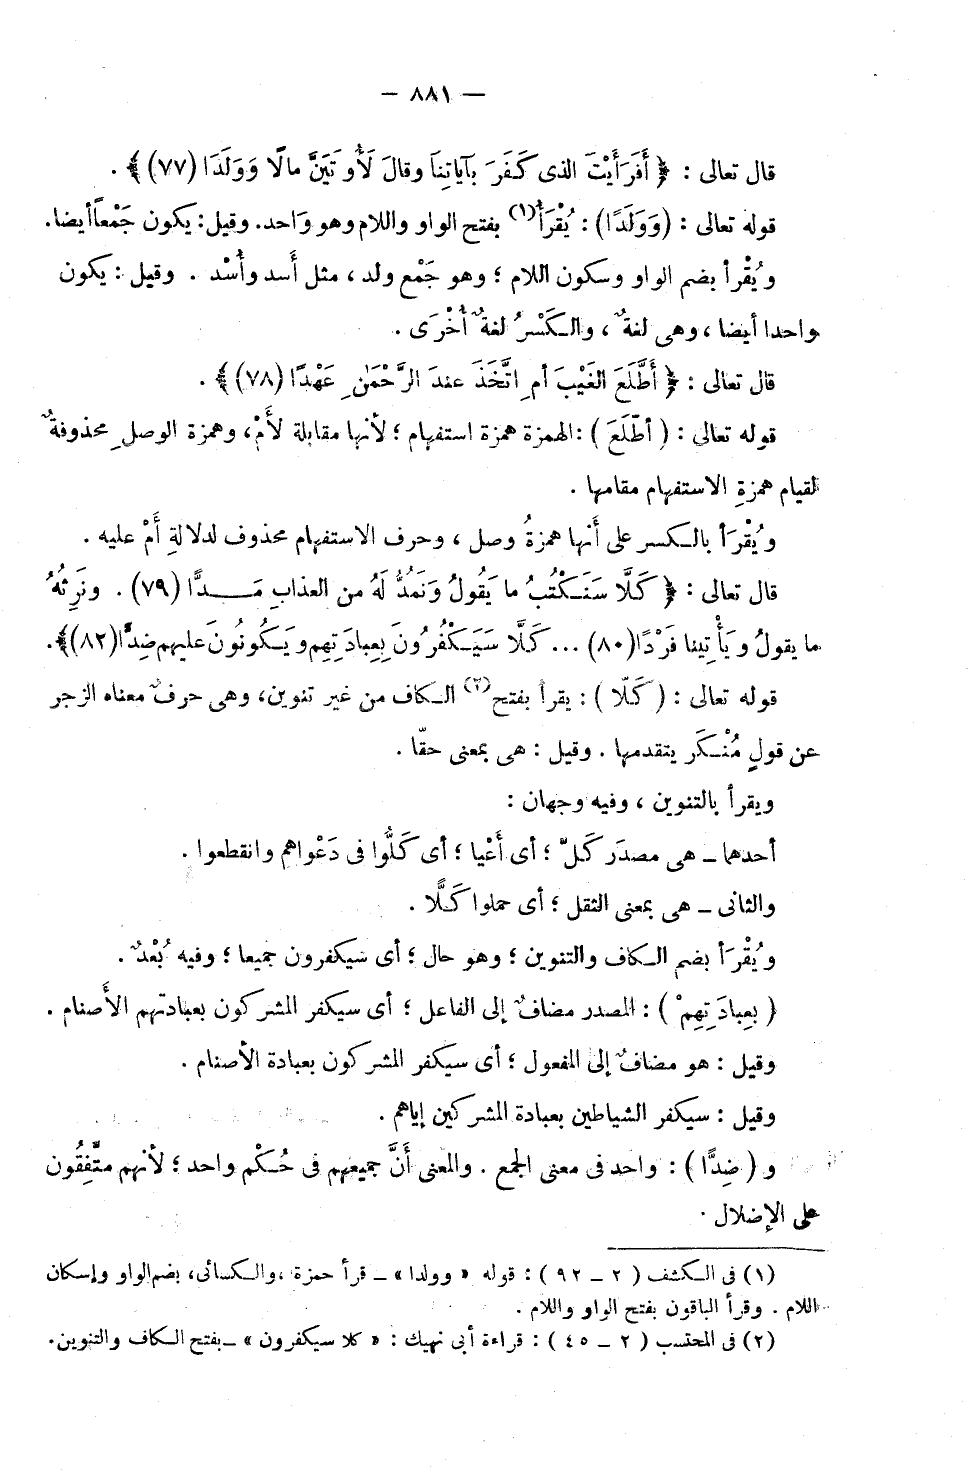 — ٨٨١ —
قال تعالى : ﴿ أَفَرَأَيْتَ الذى كَفَرَ بآياتِنَا وقالَ لَأُوتَيَنَّ مالًا وَوَلَدَا (٧٧) ﴾ .
قوله تعالى : (وَوَلَدًا) : يُقْرَأ(١) بفتح الواو واللام وهو واحد. وقيل: يكون جَمْعاً أيضا.
ويُقْرأ بضم الواو وسكون اللام ؛ وهو جَمْع ولد ، مثل أَسد وأُسْد . وقيل : يكون
واحدا أيضا ، وهى لغةٌ ، والكَسْرُ لغةٌ أُخْرَى .
قال تعالى : ﴿ أَطَّلَعَ الغَيْبَ أمِ اتَّخَذَ عندَ الرَّحْمَٰنِ عَهْدًا (٧٨) ﴾ .
قوله تعالى : ( أطّلَعَ ) : الهمزة همزة استفهام ؛ لأنها مقابلة لأَمْ، وهمزة الوصلِ محذوفةٌ
لقيام همزةِ الاستفهام مقامها .
ويُقْرَأ بالكسر على أنها همزةُ وصل ، وحرف الاستفهام محذوف لدلالةِ أَمْ عليه .
قال تعالى : ﴿ كَلَّا سَنَكْتُبُ ما يَقُولُ وَنَمُدُّ لَهُ من العذابِ مَدًّا (٧٩) . ونَرِثُهُ
ما يقولُ ويَأْتِينا فَرْدًا(٨٠) ... كَلَّا سَيَكْفُرُونَ بِعِبادَتِهِم ويَكُونُونَ عليهم ضِدًّا(٨٢)﴾.
قوله تعالى : ( كَلّا ) : يقرأ بفتح(٢) الكاف من غير تنوين، وهى حرفٌ معناه الزجر
عن قولٍ مُنْكَر يتقدمها . وقيل : هى بمعنى حقّا .
ويقرأ بالتنوين ، وفيه وجهان :
أحدهما ــ هى مصدَر كَلّ ؛ أى أَعْيا ؛ أى كَلُّوا فى دَعْواهم وانقطعوا .
والثانى ــ هى بمعنى الثقل ؛ أى حملوا كَلًّا .
ويُقْرَأ بضم الكاف والتنوين ؛ وهو حال ؛ أى سيكفرون جميعا ؛ وفيه بُعْدٌ .
( بِعِبادَتِهِمْ ) : المصدر مضافٌ إلى الفاعل ؛ أى سيكفر المشركون بعبادتهم الأَصنام .
وقيل : هو مضافٌ إلى المفعول ؛ أى سيكفر المشركون بعبادة الأصنام .
وقيل : سيكفر الشياطين بعبادة المشركين إياهم .
و ( ضِدًّا ) : واحد فى معنى الجمع . والمعنى أَنَّ جميعهم فى حُكْم واحد ؛ لأنهم متَّفِقُون
على الإضلال .
(١) فى الكشف ( ٢ ــ ٩٢ ) : قوله « وولدا » ــ قرأ حمزة ، والكسائى ، بضم الواو وإسكان
اللام . وقرأ الباقون بفتح الواو واللام .
(٢) فى المحتسب ( ٢ ــ ٤٥ ) : قراءة أبى نهيك : « كلا سيكفرون » ــ بفتح الكاف والتنوين.